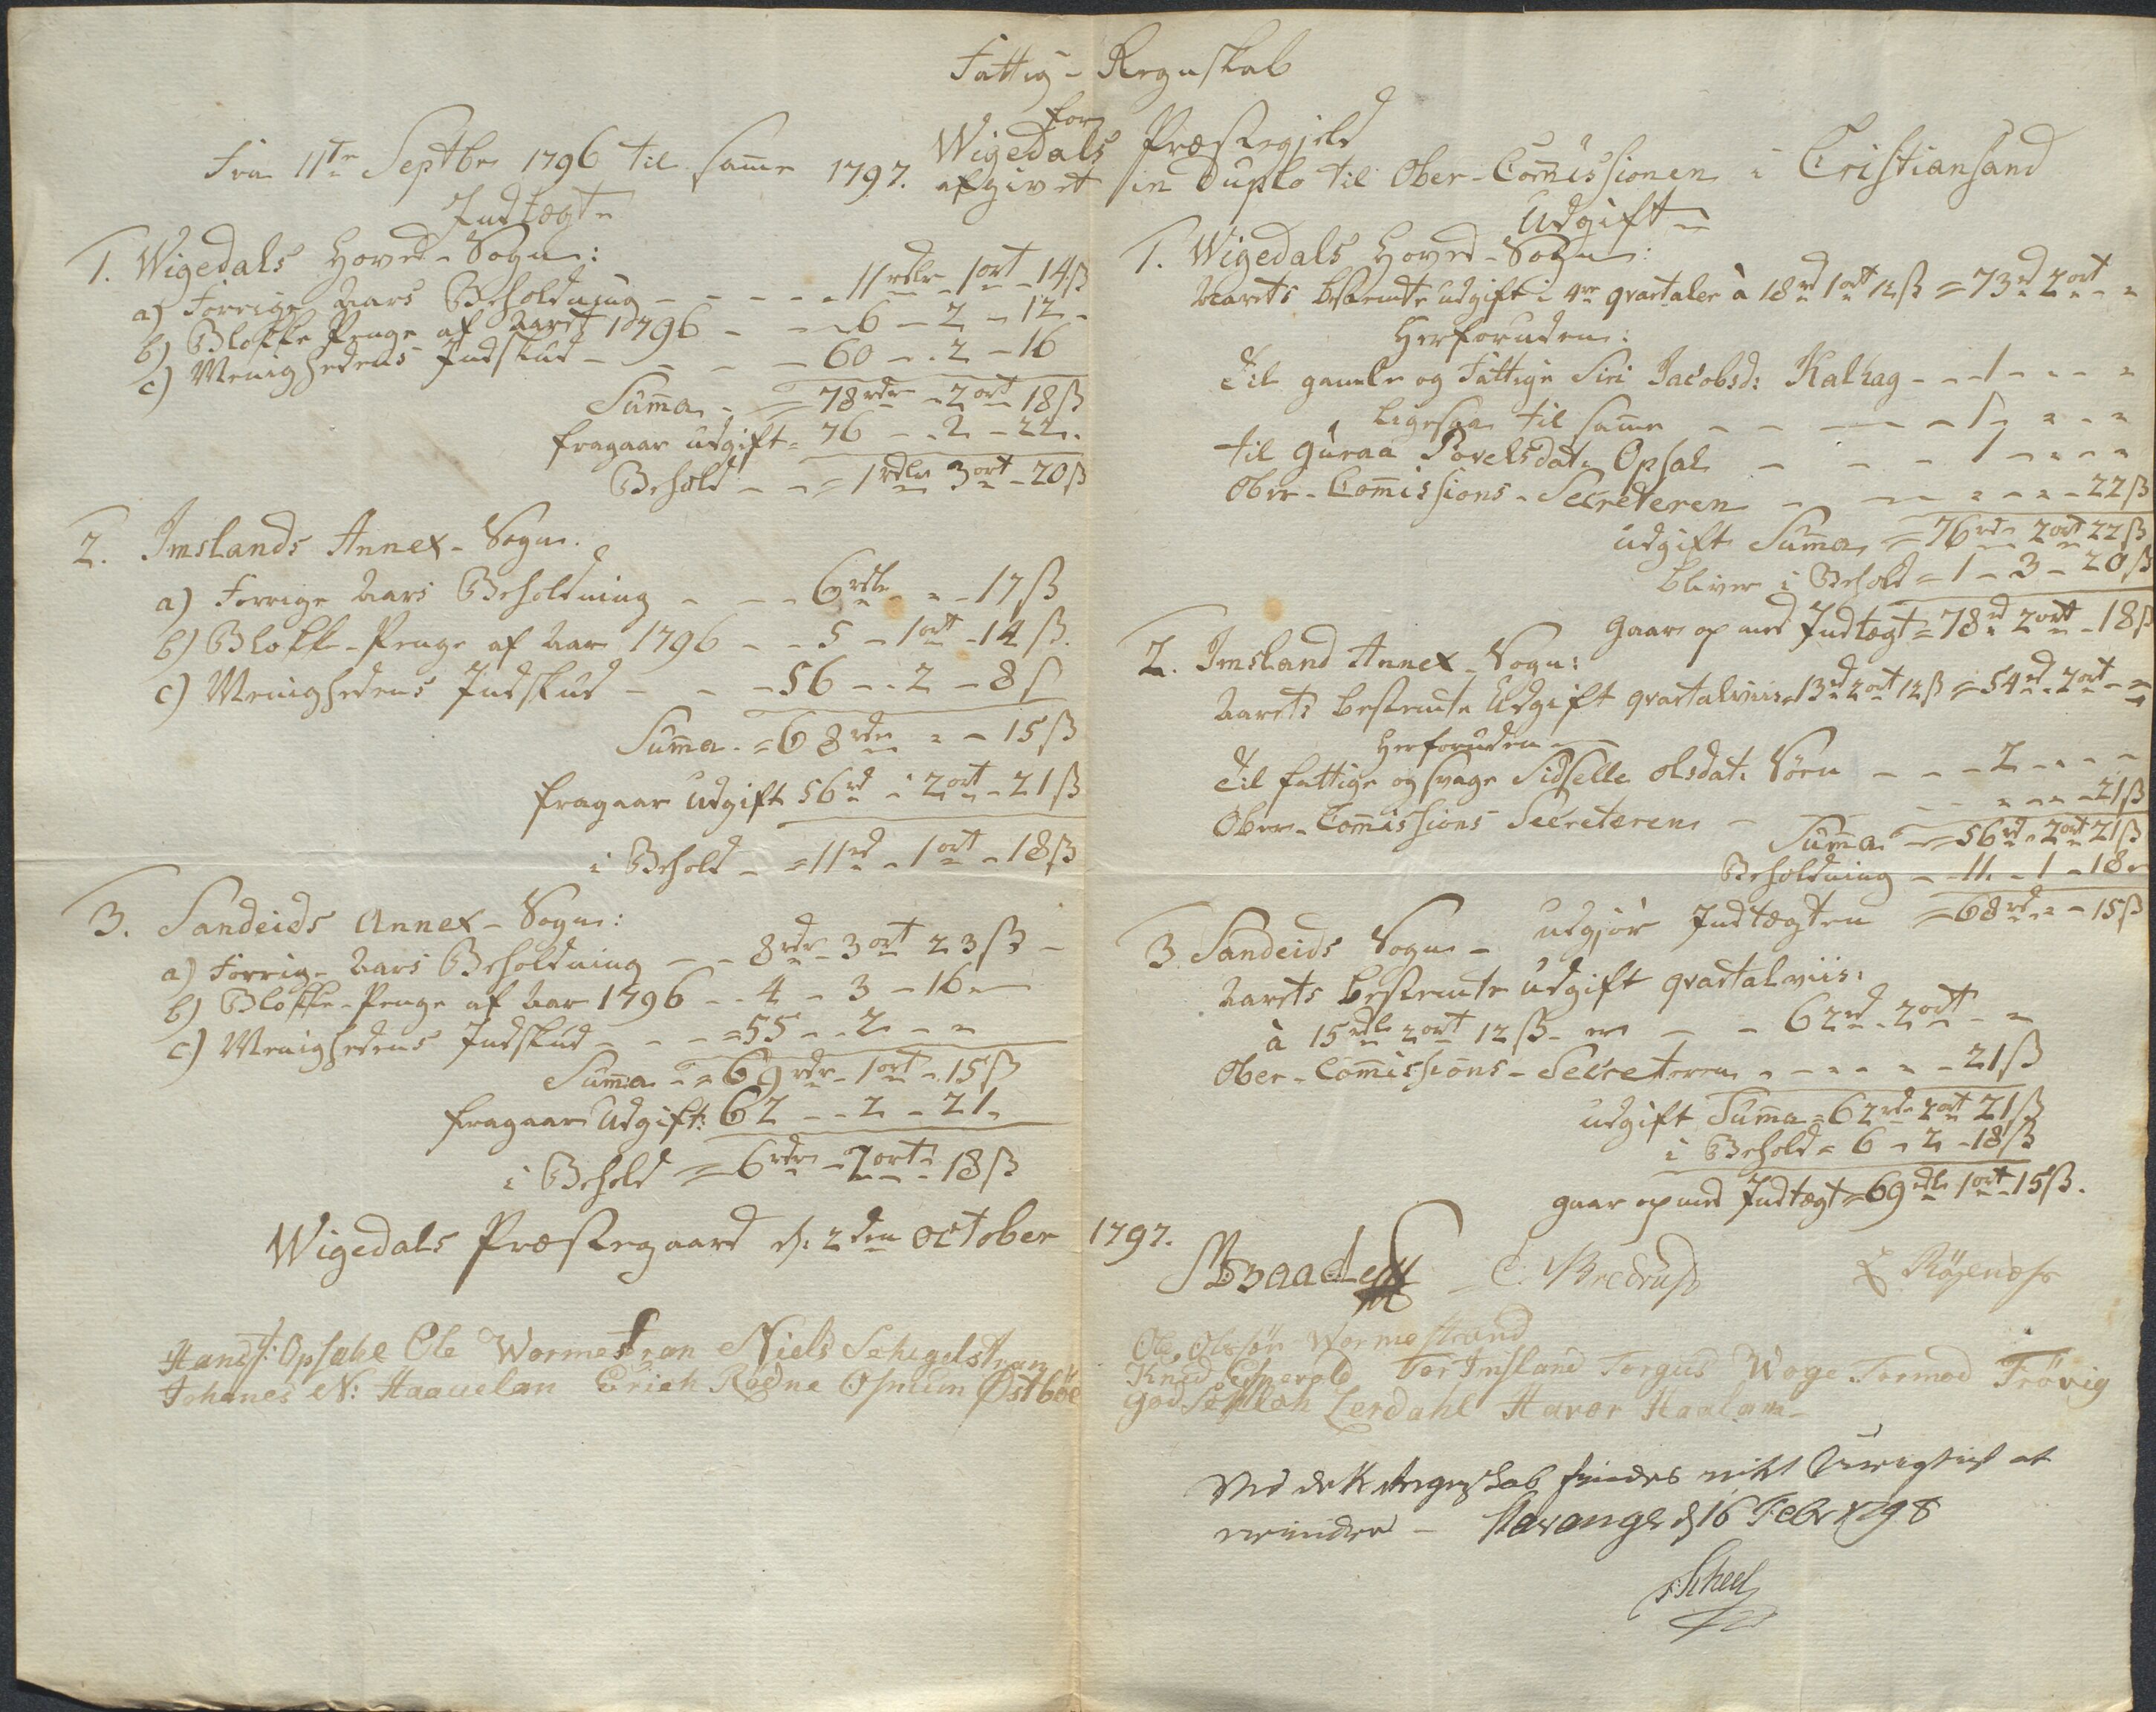 Fattig-Regnskab
for
Wigedals Præstegield
Fra 11te Septbr 1796 til samme 1797. afgivet in Duplo til Ober-Com̄issionen i Cristiansand
Indtægt
1. Wigedals Hoved-Sogn:
a) Forrige Aars Beholdning - - - - 11 rdlr - 1 ort - 14 ß
b) Blokke Penge af Aaret 1796 - - - 6 - 2 - 12 -
c) Menighedens Indskud - - - - 60 - - 2 - 16
Sum̄a - = 78 rdr - 2 ort 18 ß
fragaar Udgift = 76 - - 2 - 22.
Behold - - = 1 rdlr 3 ort - 20 ß
2. Imslands Annex-Sogn.
a) Forrige Aars Beholdning - - - 6 rdlr - - 17 ß
b) Blokke-Penge af Aar 1796 - - 5 - 1 ort - 14 ß.
c) Menighedens Indskud - - - 56 - - 2 - 8 ß
Sum̄a = 68 rdr - - 15 ß
fragaar Udgift 56 rd - 2 ort - 21 ß
i Behold - = 11 rd - 1 ort - 18 ß
3. Sandeids Annex-Sogn:
a) Forrige Aars Beholdning - - 8 rdr - 3 ort 23 ß -
b) Blokke-Penge af Aar 1796 - - 4 - 3 - 16 -
c) Menighedens Indskud - - - = 55 - - 2 - -
Sum̄a - = 69 rdr - 1 ort - 15 ß
fragaar Udgift: 62 - - 2 - 21.
i Behold = 6 rdr - 2 ort - 18 ß
Udgift
1. Wigedals Hoved-Sogn:
Aarets bestemte Udgift i 4re qvartaler à 18 rd 1 ort 12 ß = 73 rd 2 ort - -
Herforuden:
Til gamle og Fattige Siri Jacobsd: Kalhag - - 1 - - - -
ligesaa til samme - - - - - 1 - - - -
til Guraa Povelsdat. Opsal - - - 1 - - - -
Ober-Com̄issions-Secreteren - - - - - - 22 ß
Udgift Sum̄a = 76 rdr 2 ort 22 ß
bliver i Behold = 1 - 3 - 20 ß
gaar op med Indtægt = 78 rd 2 ort - 18 ß
2. Imsland Annex-Sogn:
Aarets bestemte Udgift qvartalviis 13 rd 2 ort 12 ß = 54 rd 2 ort - -
Herforuden -
Til fattige og svage Sidselle Olsdat. Sørn - - - 2 - - - -
Ober-Com̄issions Secreteren - - - - - - - 21 ß
Sum̄a - = 56 rd - 2 ort 21 ß
Beholdning - - 11. - 1 - 18 -
udgjør Indtægten = 68 rd - - 15 ß
3. Sandeids Sogn -
Aarets bestemte Udgift qvartalviis:
à 15 rdlr 2 ort 12 ß er - - 62 rd - 2 ort - -
Ober-Com̄issions-Secreteren - - - - - - 21 ß
Udgift Sum̄a = 62 rdr 2 ort 21 ß
i Behold = 6 - 2 - 18 ß
gaar op med Indtægt = 69 rdlr 1 ort 15 ß.
Wigedals Præstegaard d. 2den October 1797.
Baade C. Bredrup
Opsahl Ole Wormestran Niels
Johanes N: Erich Rødne Osmun Østbøe
Ole Olssøn Wormestrand
Knud Tor Imsland Torgus Woge Tormod Frövig
Lerdahl Havor
Ved dette Regnskab findes intet Erindre
erindre - Stavanger d. 16 Febr 1798
Scheel